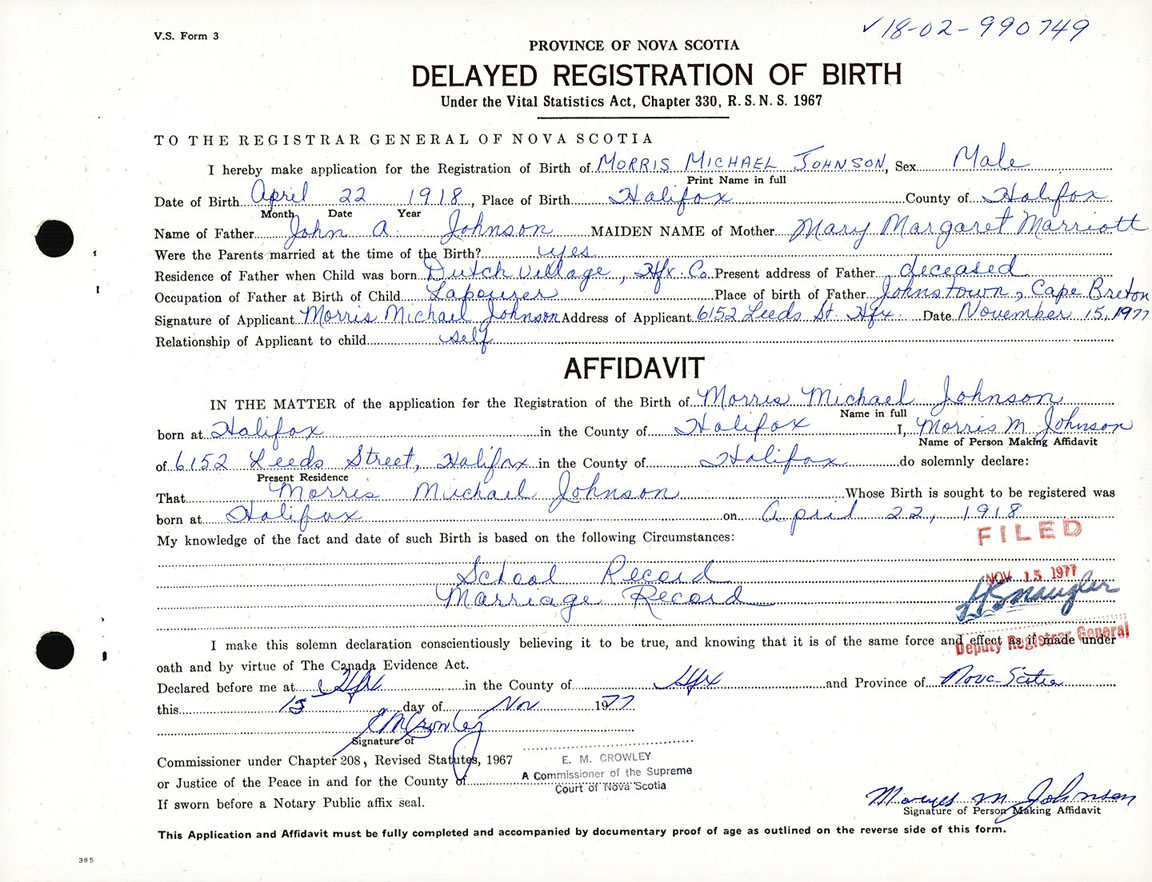 V.S. Form 3
✓18-02-990749
PROVINCE OF NOVA SCOTIA
DELAYED REGISTRATION OF BIRTH
Under the Vital Statistics Act, Chapter 330, R.S.N.S. 1967
TO THE REGISTRAR GENERAL OF NOVA SCOTIA
I hereby make application for the Registration of Birth of MORRIS MICHAEL JOHNSON, Sex Male
Print Name in full
Date of Birth April 22 1918, Place of Birth Halifax County of Halifax
Month Date Year
Name of Father John A. Johnson MAIDEN NAME of Mother Mary Margaret Marriott
Were the Parents married at the time of the Birth? yes
Residence of Father when Child was born Dutch Village, Hfx. Co. Present address of Father deceased
Occupation of Father at Birth of Child Labourer Place of birth of Father Johnstown, Cape Breton
Signature of Applicant Morris Michael Johnson Address of Applicant 6152 Leeds St. Hfx. Date November 15, 1977
Relationship of Applicant to child self
AFFIDAVIT
IN THE MATTER of the application for the Registration of the Birth of Morris Michael Johnson
Name in full
born at Halifax in the County of Halifax I, Morris M. Johnson
Name of Person Making Affidavit
of 6152 Leeds Street, Halifax in the County of Halifax do solemnly declare:
Present Residence
That Morris Michael Johnson Whose Birth is sought to be registered was
born at Halifax on April 22, 1918
My knowledge of the fact and date of such Birth is based on the following Circumstances:
FILED
School Record
NOV 15 1977
Marriage Record
I make this solemn declaration conscientiously believing it to be true, and knowing that it is of the same force and effect as if made under
Deputy Registrar General
oath and by virtue of The Canada Evidence Act.
Declared before me at Hfx in the County of Hfx and Province of Nova Scotia
this 15 day of Nov 1977
E M Crowley
Signature of
Commissioner under Chapter 208, Revised Statutes, 1967
E. M. CROWLEY
A Commissioner of the Supreme
Court of Nova Scotia
or Justice of the Peace in and for the County of
If sworn before a Notary Public affix seal.
M Johnson
Signature of Person Making Affidavit
This Application and Affidavit must be fully completed and accompanied by documentary proof of age as outlined on the reverse side of this form.
385